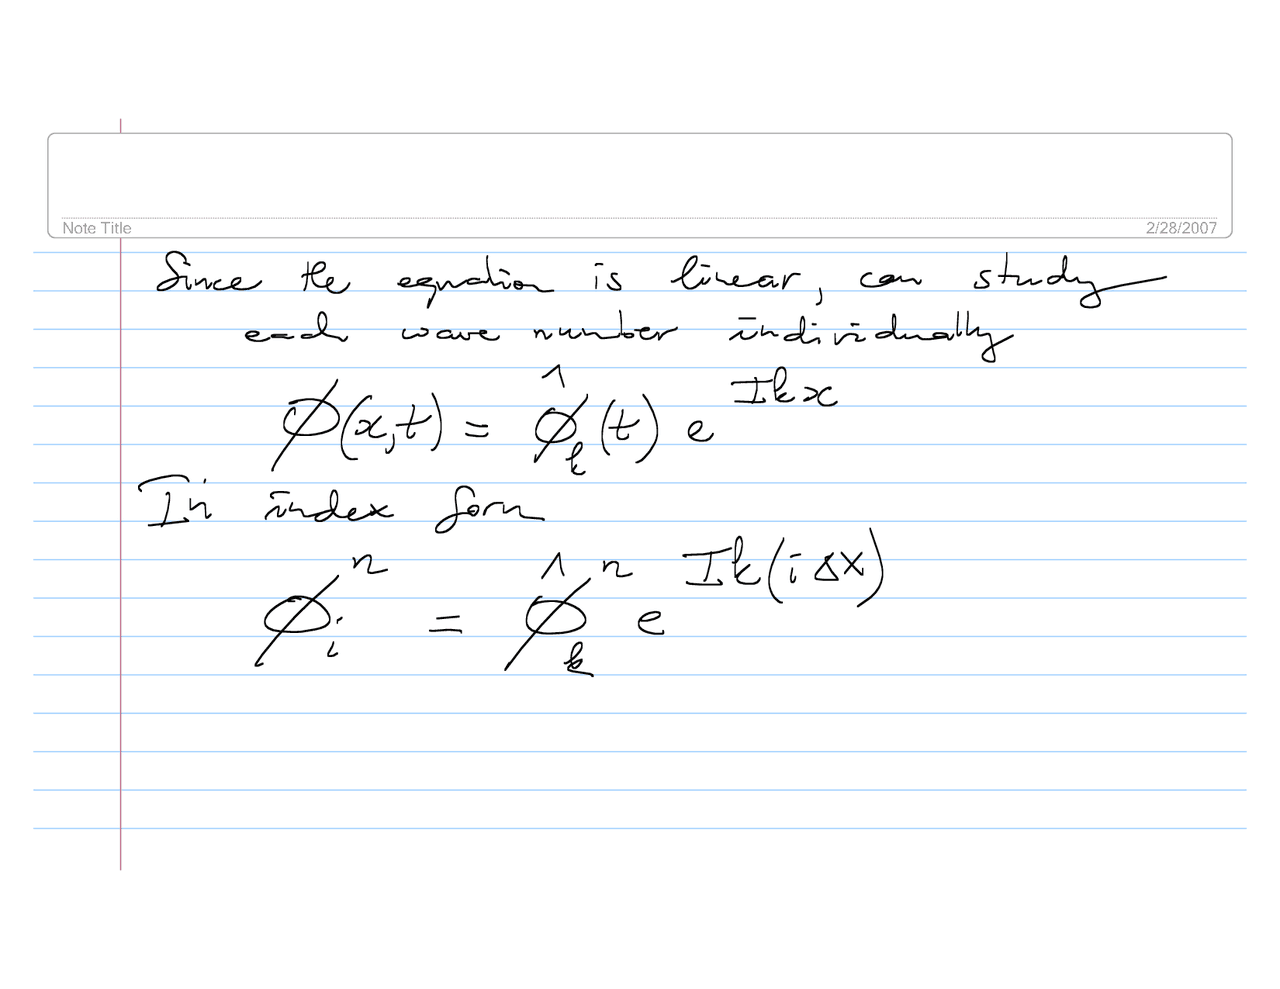 Note Title
2/28/2007
Since the equation is linear, can study
each wave number individually
ϕ(x,t) = ϕ̂_k(t) e^{Ikx}
In index form
ϕ_i^n = ϕ̂_k^n e^{Ik(iΔx)}